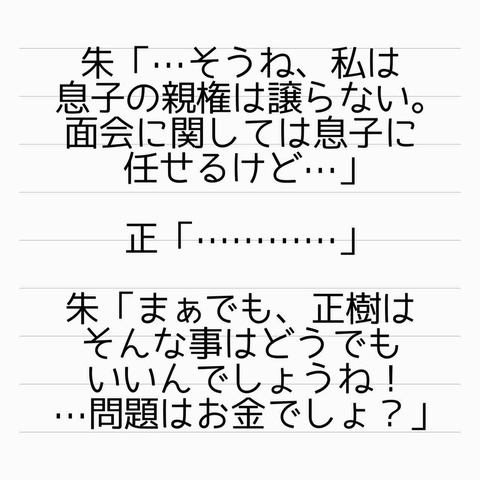 朱「…そうね、私は
息子の親権は譲らない。
面会に関しては息子に
任せるけど…」
正「…………」
朱「まぁでも、正樹は
そんな事はどうでも
いいんでしょうね！
…問題はお金でしょ？」